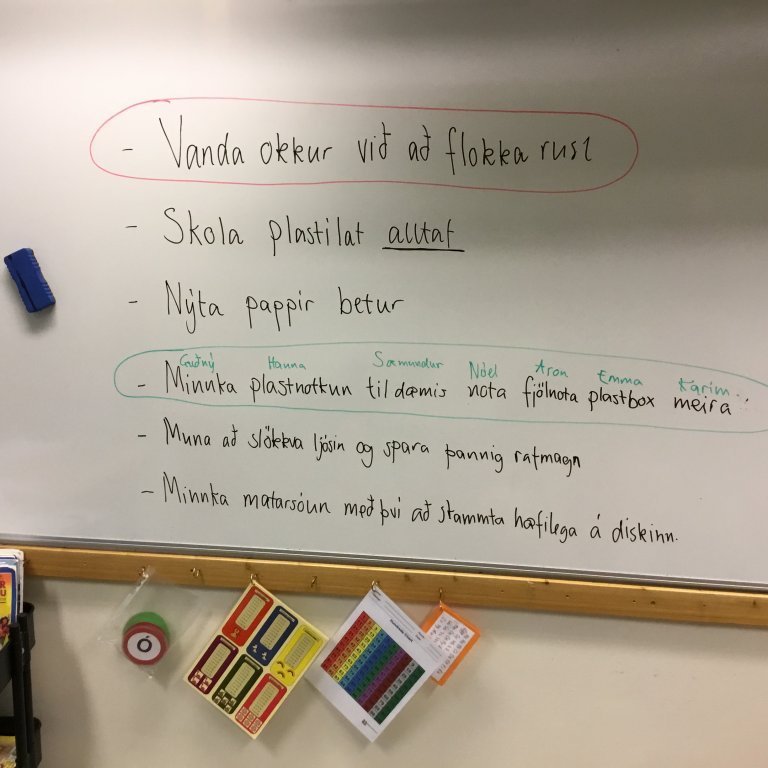 - Vanda okkur við að flokka rusl
- Skola plastilát alltaf
- Nýta pappír betur
Guðný Hanna Sæmundur Nóel Aron Emma Karim
- Minnka plastnotkun til dæmis nota fjölnota plastbox meira
- Muna að slökkva ljósin og spara þannig rafmagn
- Minnka matarsóun með því að skammta hæfilega á diskinn.
Ó